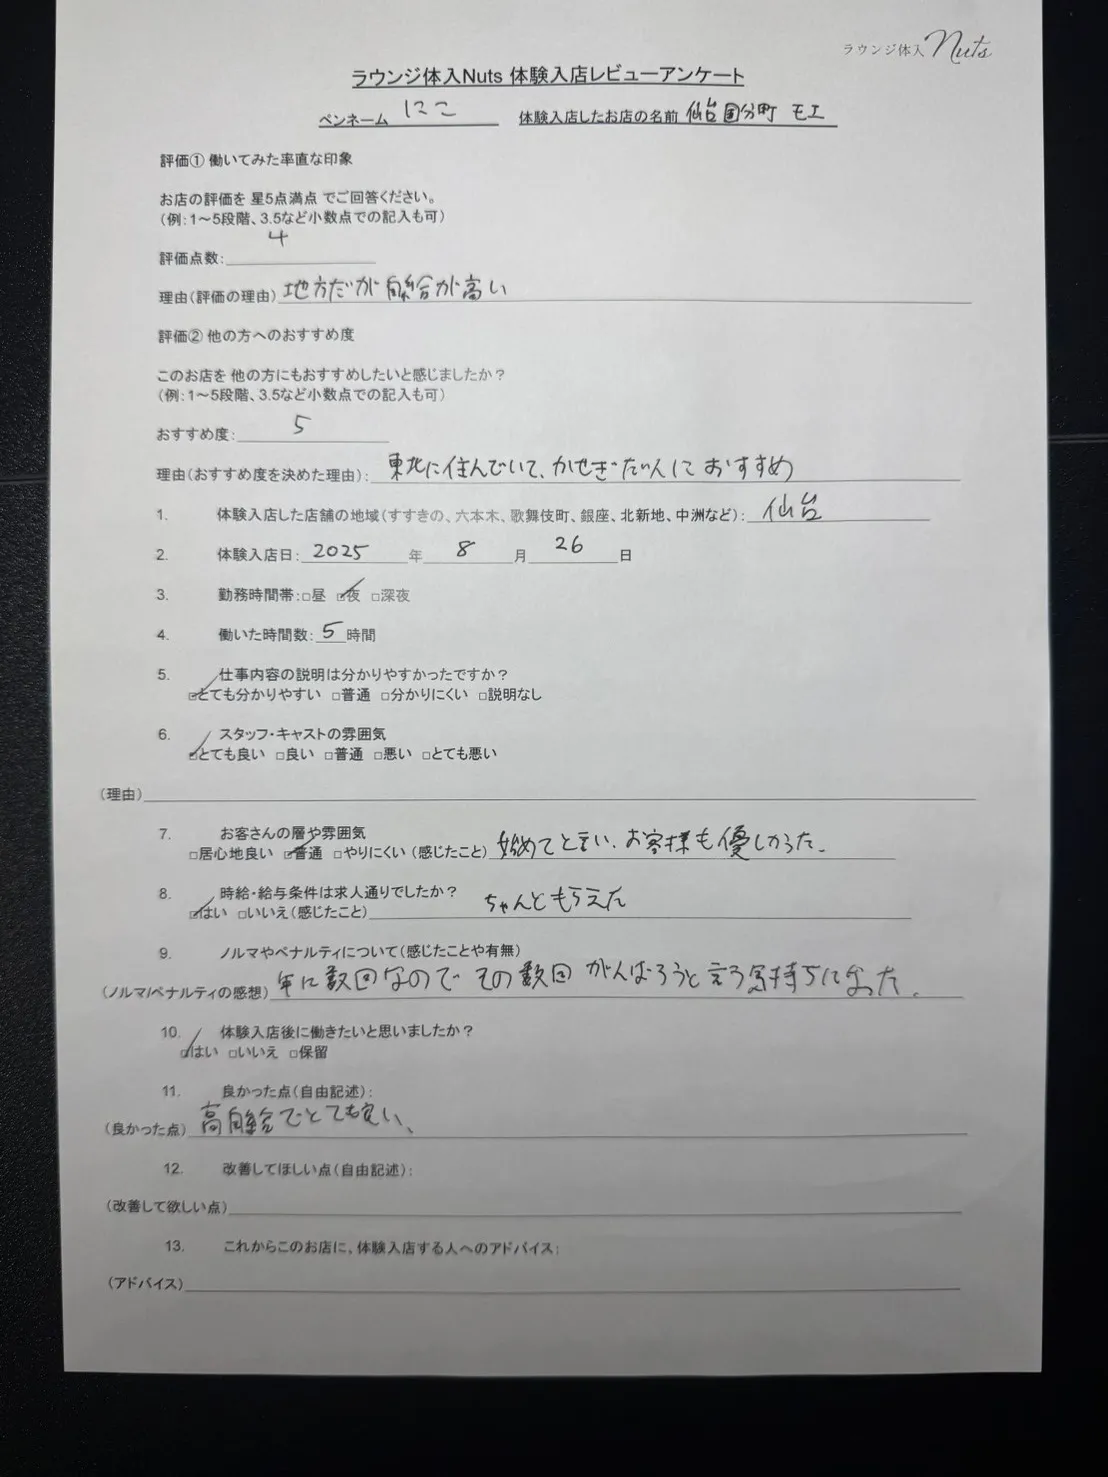 ラウンジ体入 Nuts
ラウンジ体入Nuts 体験入店レビューアンケート
ペンネーム にこ 体験入店したお店の名前 仙台国分町 モエ
評価① 働いてみた率直な印象
お店の評価を 星5点満点 でご回答ください。
(例:1～5段階、3.5など小数点での記入も可)
評価点数: 4
理由(評価の理由) 地方だが 時給が高い
評価② 他の方へのおすすめ度
このお店を 他の方にもおすすめしたいと感じましたか?
(例:1～5段階、3.5など小数点での記入も可)
おすすめ度: 5
理由(おすすめ度を決めた理由): 東北に住んでいて、かせぎたい人におすすめ
1. 体験入店した店舗の地域(すすきの、六本木、歌舞伎町、銀座、北新地、中洲など): 仙台
2. 体験入店日: 2025 年 8 月 26 日
3. 勤務時間帯:□昼 ☑夜 □深夜
4. 働いた時間数: 5 時間
5. 仕事内容の説明は分かりやすかったですか?
☑とても分かりやすい □普通 □分かりにくい □説明なし
6. スタッフ・キャストの雰囲気
☑とても良い □良い □普通 □悪い □とても悪い
(理由)
7. お客さんの層や雰囲気
□居心地良い ☑普通 □やりにくい (感じたこと) 始めてと言い、お客様も優しかった。
8. 時給・給与条件は求人通りでしたか?
☑はい □いいえ(感じたこと) ちゃんともらえた
9. ノルマやペナルティについて(感じたことや有無)
(ノルマ/ペナルティの感想) 年に数回なので その数回 がんばろうと言う気持ちになった。
10. 体験入店後に働きたいと思いましたか?
☑はい □いいえ □保留
11. 良かった点(自由記述):
(良かった点) 高時給でとても良い、
12. 改善してほしい点(自由記述):
(改善して欲しい点)
13. これからこのお店に、体験入店する人へのアドバイス:
(アドバイス)